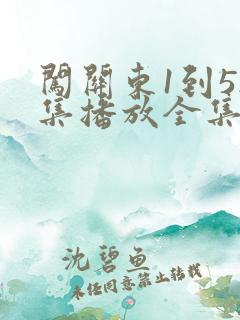 闖關東1到5
集播放全集
沈碧鱼
未经同意禁止转载